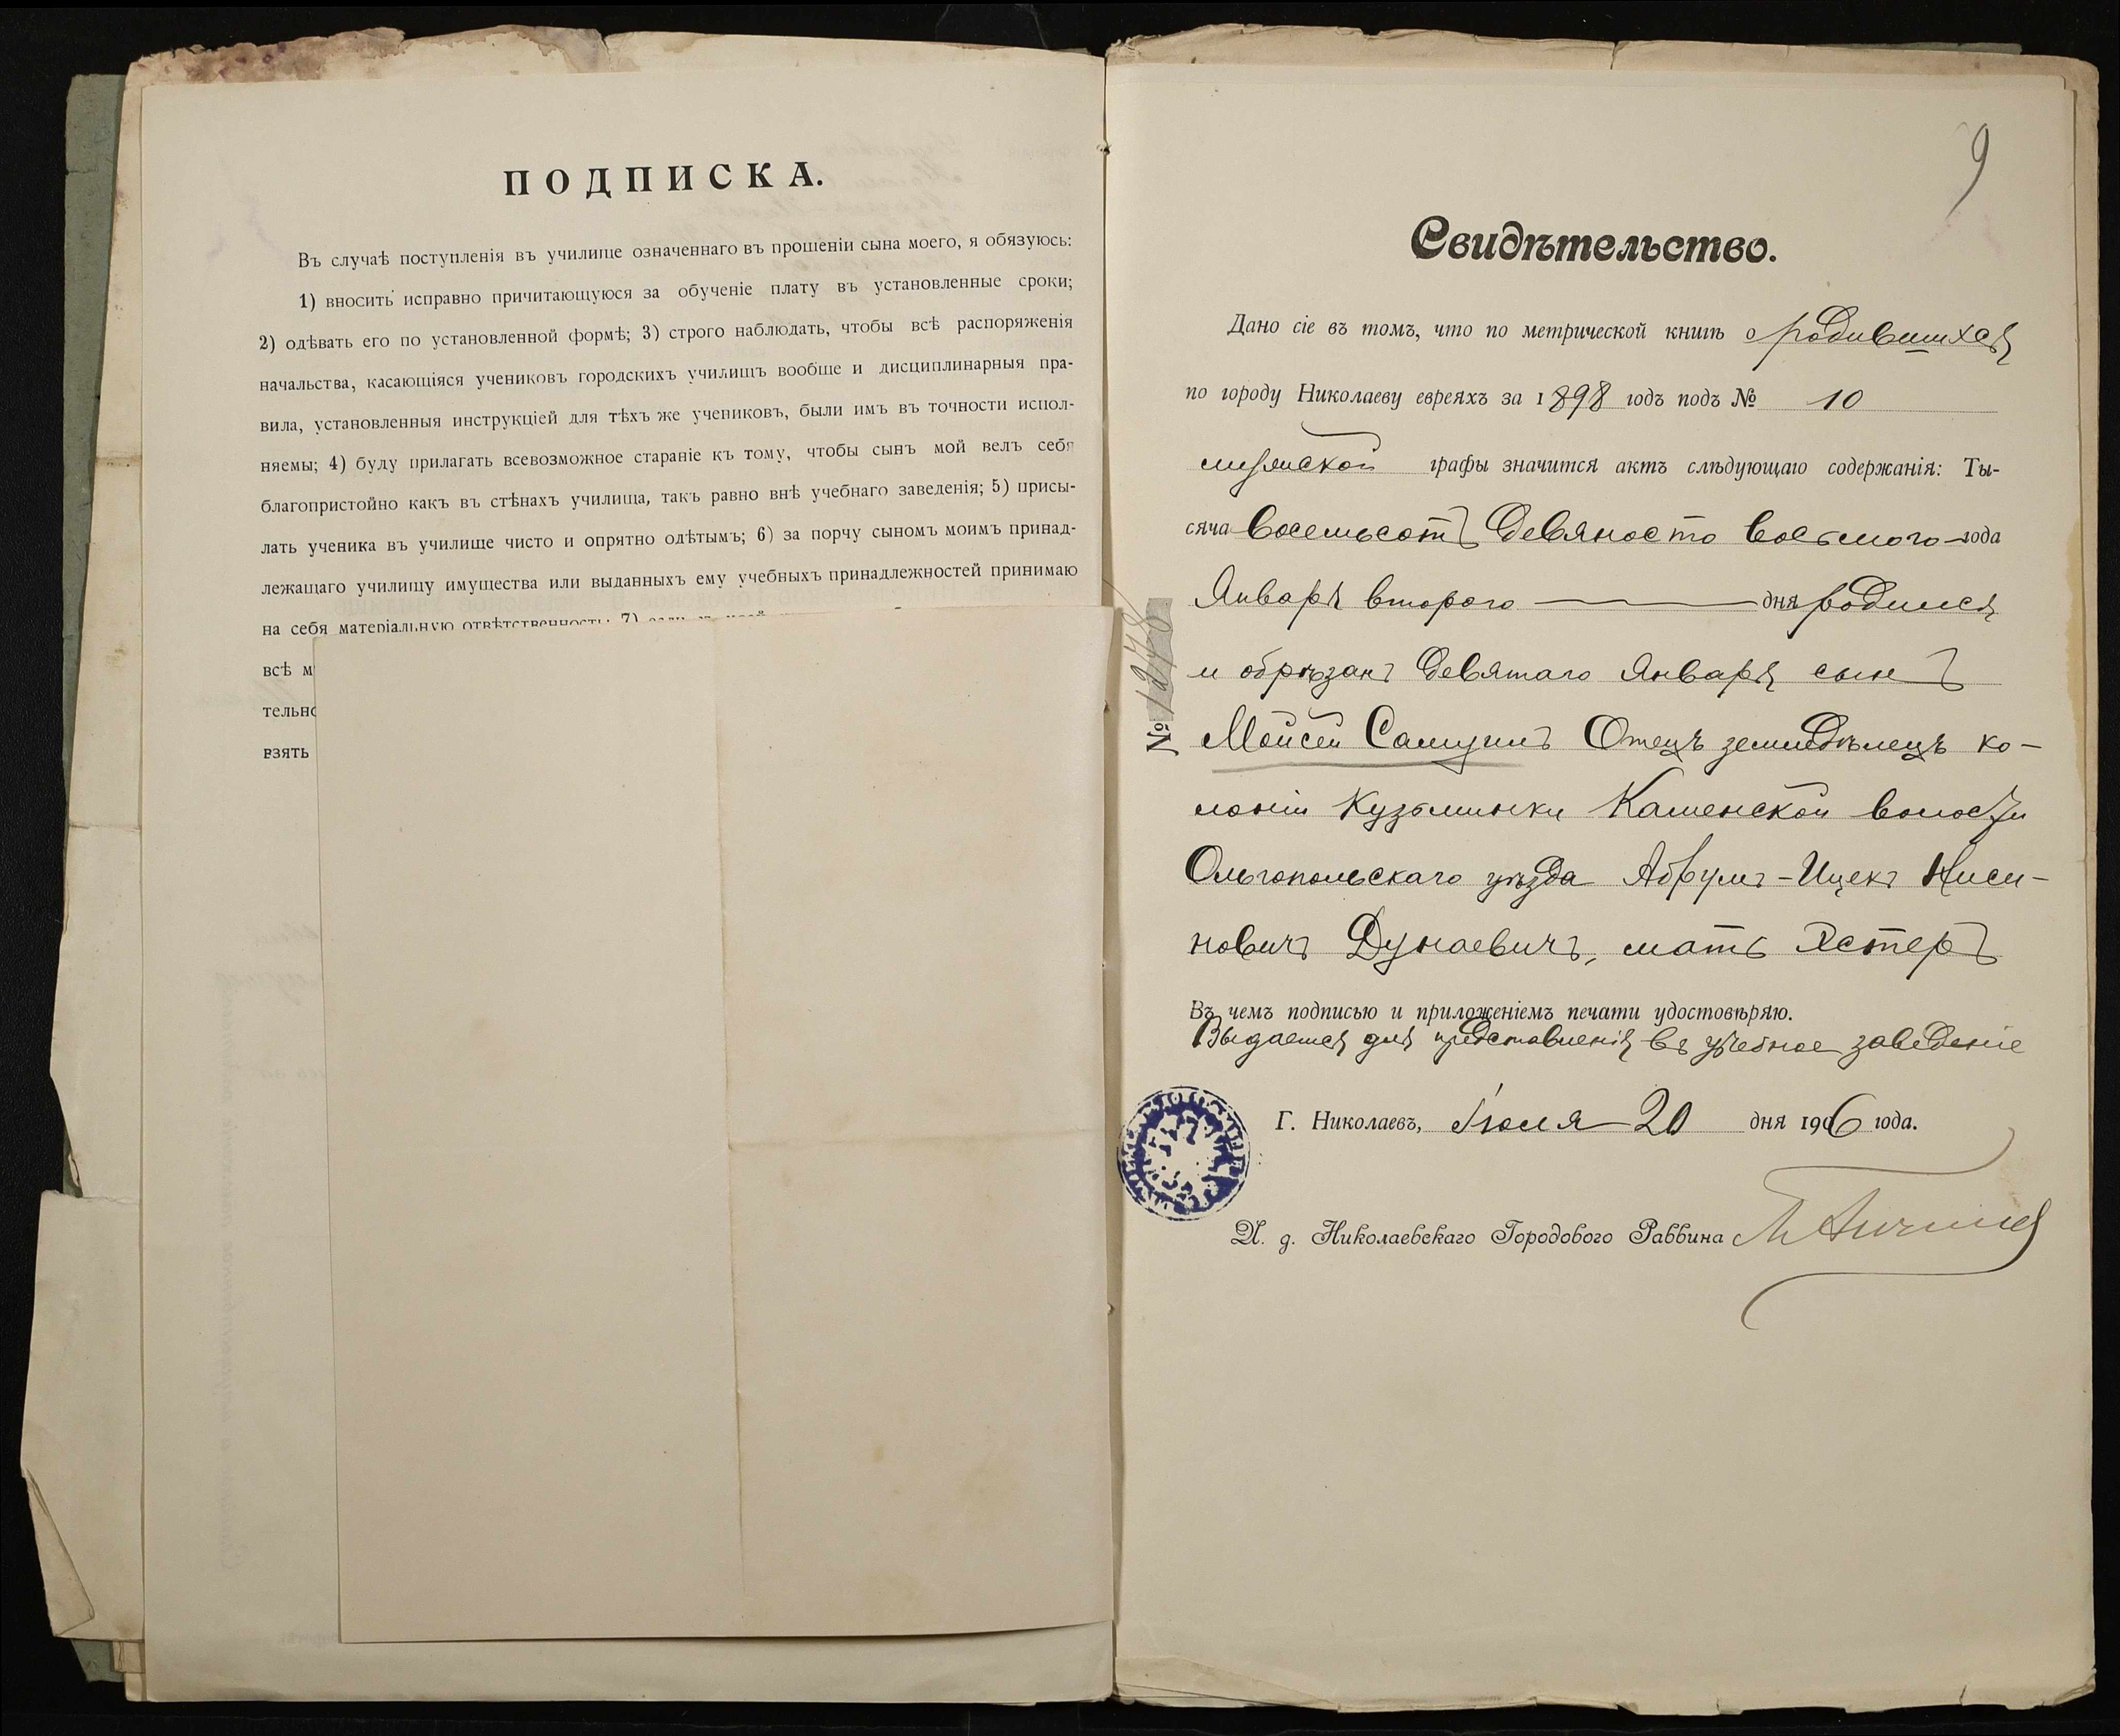 ПОДПИСКА.
Въ случаѣ поступленія въ училище означеннаго въ прошеніи сына моего, я обязуюсь:
1) вносить исправно причитающуюся за обученіе плату въ установленные сроки;
2) одѣвать его по установленной формѣ; 3) строго наблюдать, чтобы всѣ распоряженія
начальства, касающіяся учениковъ городскихъ училищъ вообще и дисциплинарныя пра-
вила, установленныя инструкціей для тѣхъ же учениковъ, были имъ въ точности испол-
няемы; 4) буду прилагать всевозможное стараніе къ тому, чтобы сынъ мой велъ себя
благопристойно какъ въ стѣнахъ училища, такъ равно внѣ учебнаго заведенія; 5) присы-
лать ученика въ училище чисто и опрятно одѣтымъ; 6) за порчу сыномъ моимъ принад-
лежащаго училищу имущества или выданныхъ ему учебныхъ принадлежностей принимаю
на себя матеріальную отвѣтственность; 7)
всѣ м
тельно
взять
9
Свидѣтельство.
Дано сіе въ томъ, что по метрической книгѣ о родившихся
по городу Николаеву евреяхъ за 1898 годъ подъ № 10
мужской графы значится актъ слѣдующаго содержанія: Ты-
сяча восемьсотъ девяносто восьмого года
Января второго дня родился
и обрѣзанъ девятаго Января сынъ
Мойсей Самуилъ Отецъ земледѣлецъ ко-
лоніи Кузьминки Каменской волости
Ольгопольскаго уѣзда Абрумъ-Ицекъ Ниси-
новичъ Дунаевичъ, мать Эстеръ
Въ чемъ подписью и приложеніемъ печати удостовѣряю.
Выдается для представленія въ учебное заведеніе
Г. Николаевъ, Іюля 20 дня 1906 года.
И. д. Николаевскаго Городового Раввина
№ 1278